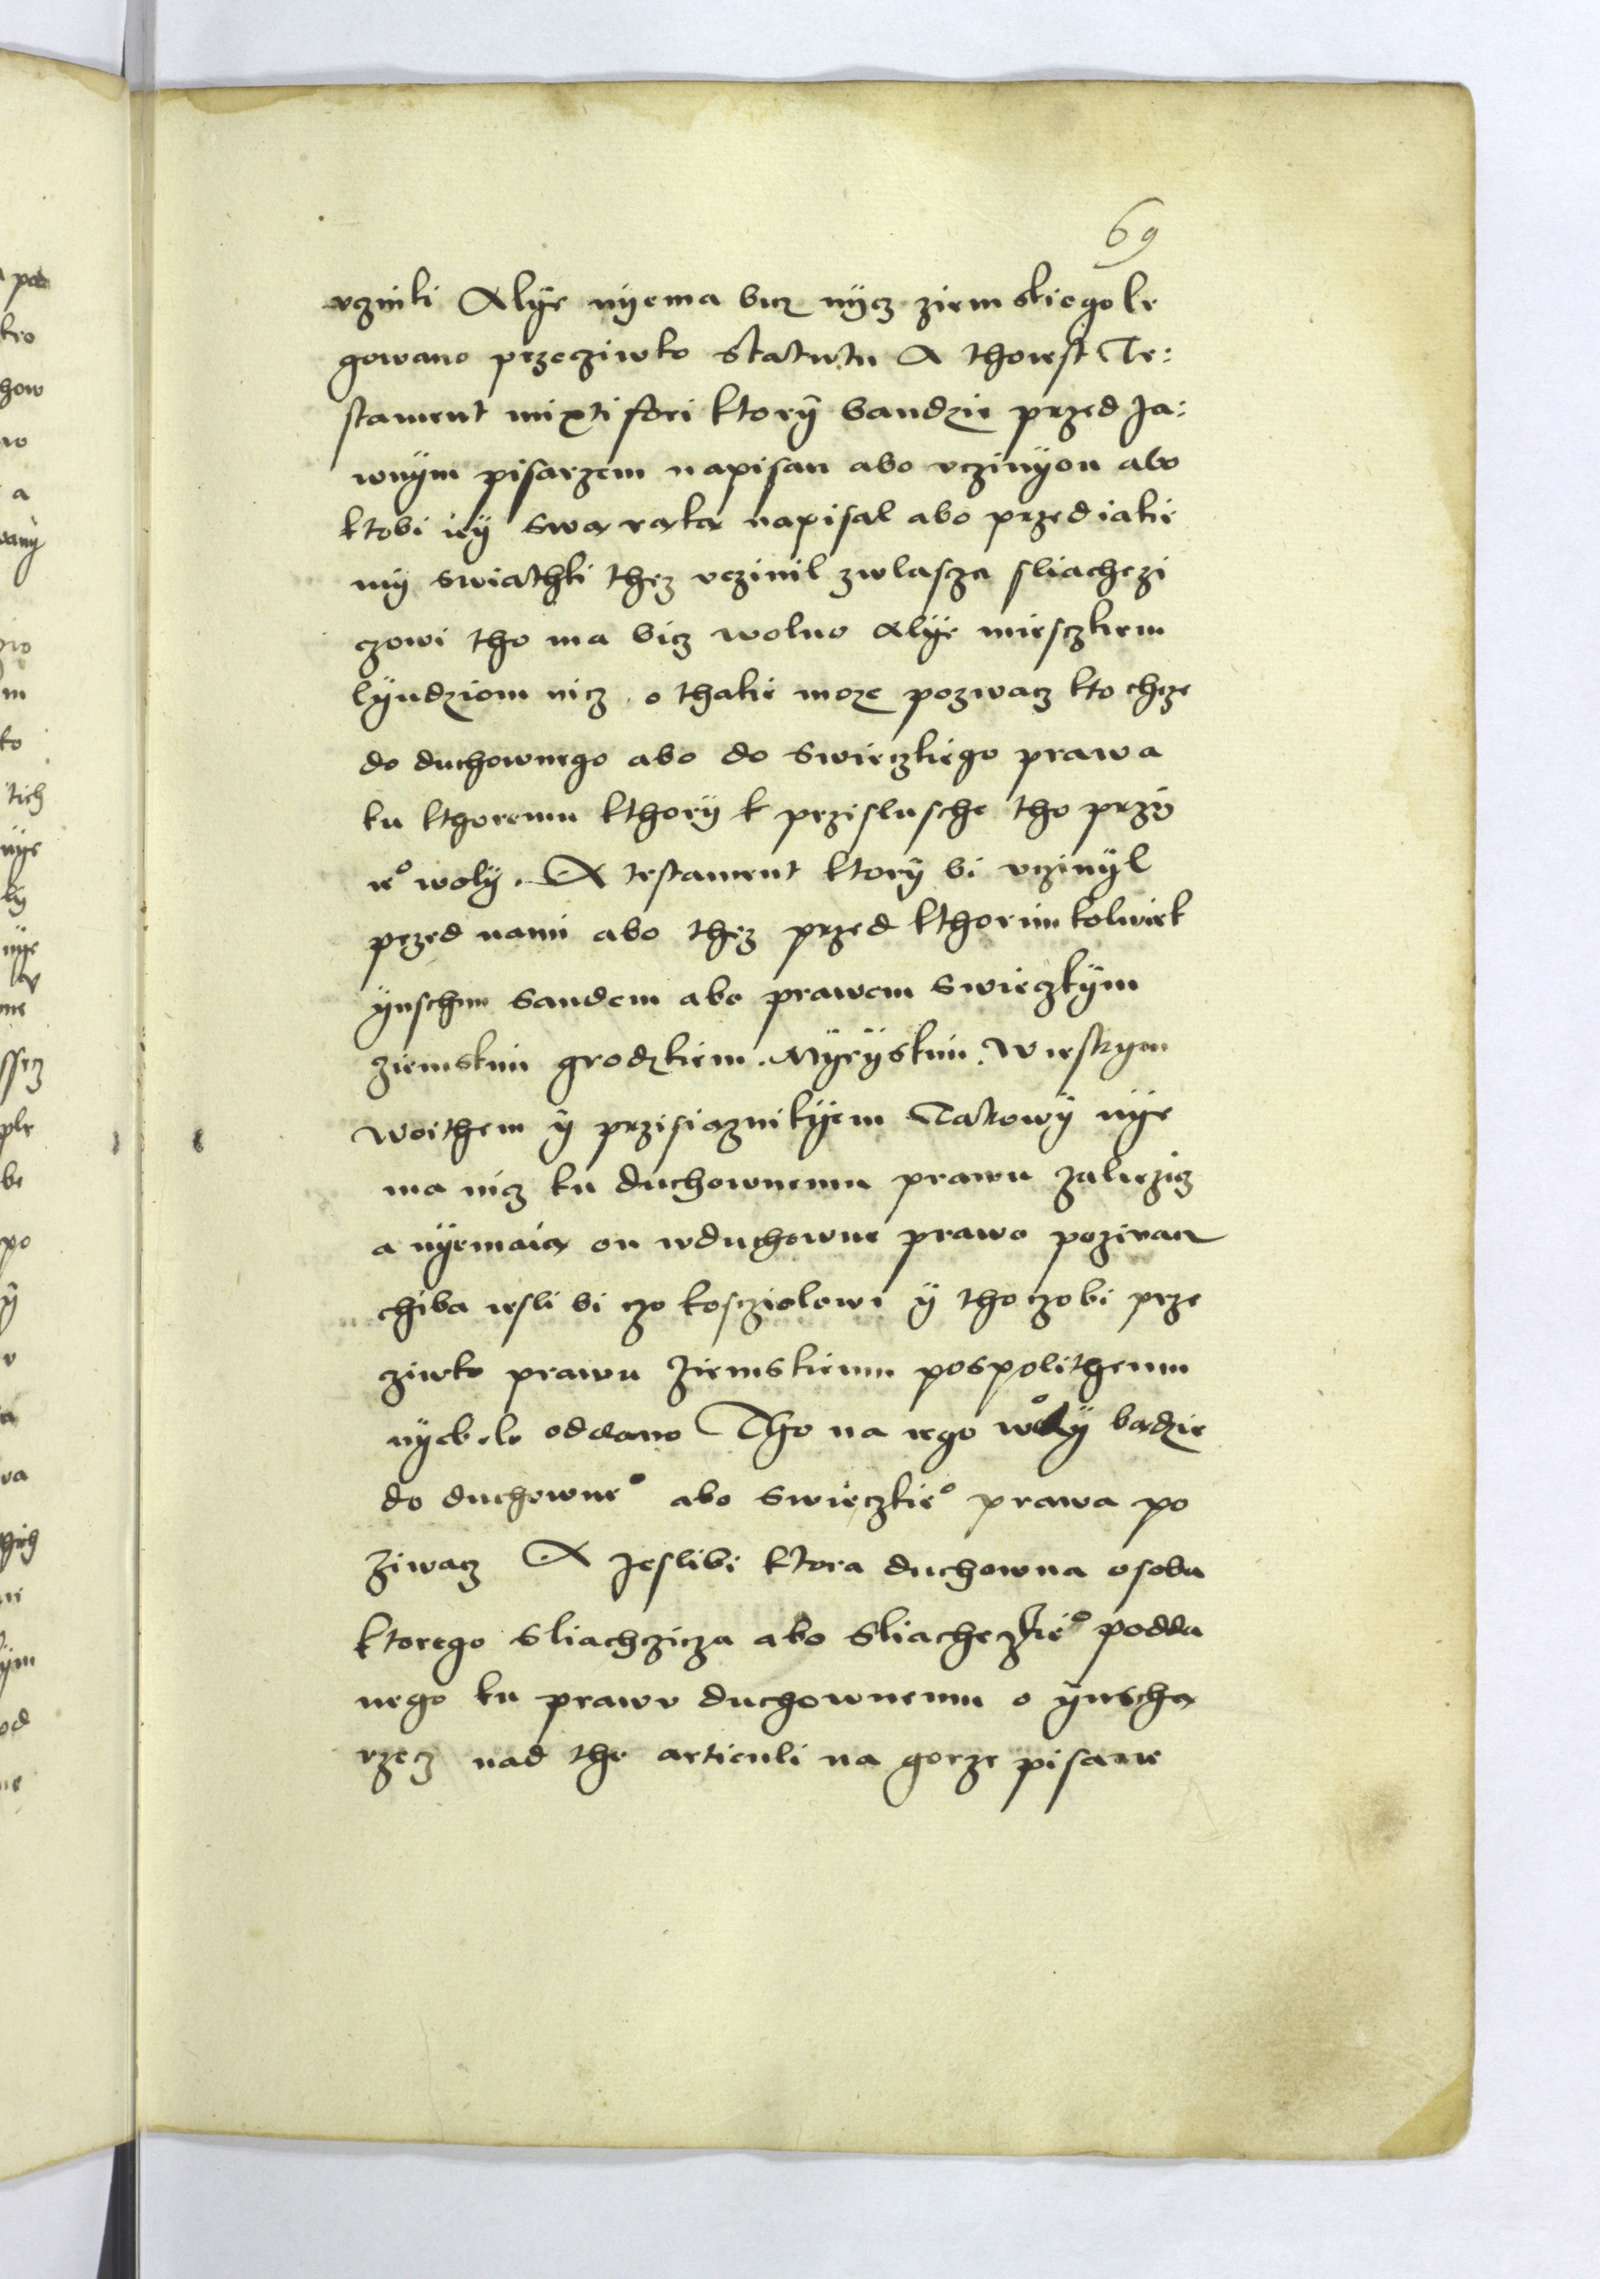 69
rzniki Alÿe nÿema bicz nÿcz ziemskiego le
gowano przecziwko statutu A thoiest Te:
stament mixti fori ktorÿ bandzie przed Ja:
wnÿm pisarzem napisan abo vczinÿon abo
ktobi ieÿ swą rąką napisal abo przed iakie
mÿ swiathki thez vczinil zwlascza sliachczi
czowi tho ma bicz wolno Alÿe miesczkiem
lÿudziom nicz o thakie moze pozwacz kto chcze
do duchownego abo do swieczkiego prawa
ku kthoremu kthorÿ k przislusche tho przÿ
ieº wolÿ. A testament ktorÿ bi vczinÿl
przed nami abo thez przed kthorim kolwiek
ÿnschim sandem abo prawem swieczkÿm
ziemskim grodzkiem. Mÿeÿskim. Wiesskym
woithem ÿ przisiaznikÿem Takowÿ nÿe
ma nicz ku duchownemu prawu zaliezicz
a nÿemaią on wduchowne prawo poziwacz
chiba iesli bi czo koscziolowi ÿ tho czo bi prze
ziwko prawu Ziemskiemu pospolithemu
oddano Tho na iego wolÿ bądzie
do duchowneº abo swieczkieº prawa po
ziwacz A Jeslibi ktora duchowna osoba
ktorego sliachczicza abo sliacheczkieº podda
nego ku prawu duchownemu o ÿnschą
rzecz nad the articuli na gorze pisane